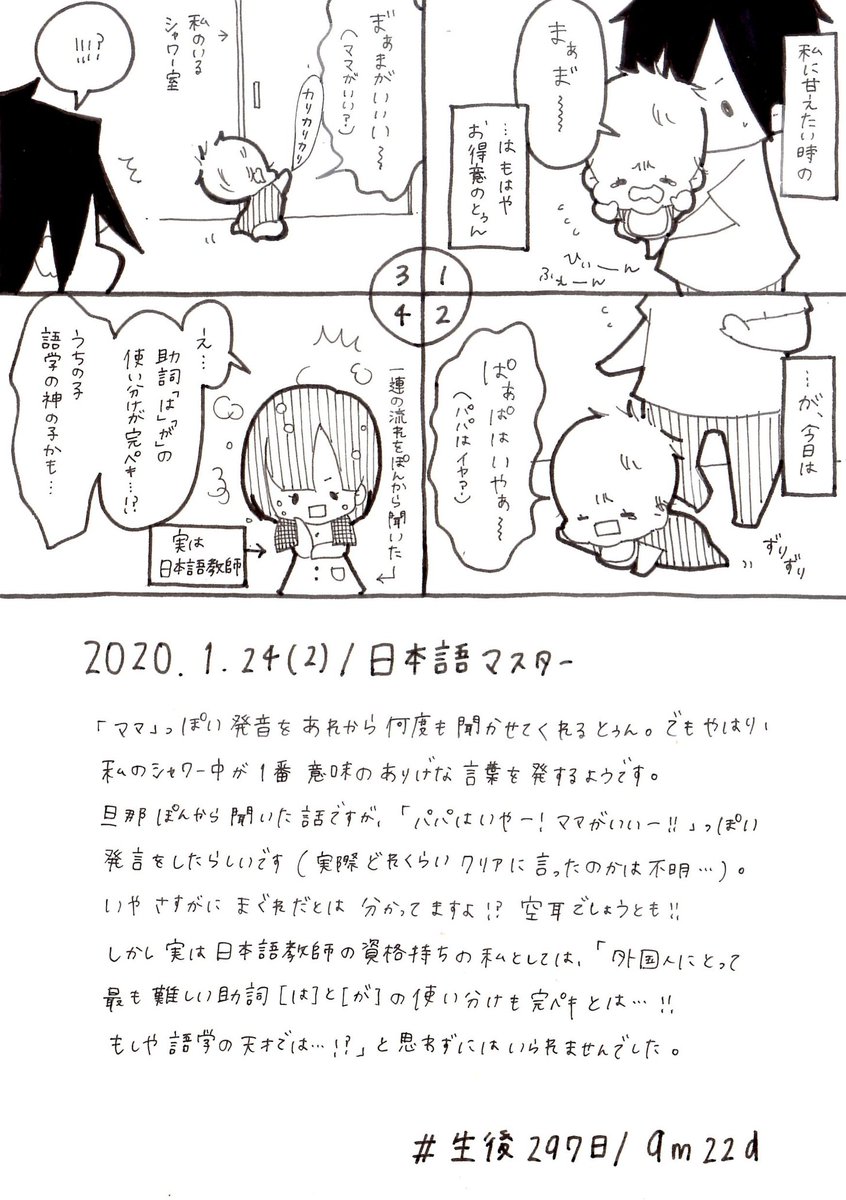 私に甘えたい時の
まぁま〜〜
…はもはや
お得意のとぅん
びぃーん
ふぇーん
1
…が、今日は
ぱぁぱはいやぁ〜
(パパはイヤ?)
ずりずり
2
まぁまがいいい〜
(ママがいい?)
カリカリカリ
私のいる
シャワー室
!!!?
3
4
一連の流れをぽんから聞いた
え…
助詞「は」「が」の
使い分けが完ペキ…!?
うちの子
語学の神の子かも…
実は
日本語教師
2020.1.24(2)/日本語マスター
「ママ」っぽい発音をあれから何度も聞かせてくれるとぅん。でもやはり、
私のシャワー中が1番意味のありげな言葉を発するようです。
旦那ぽんから聞いた話ですが、「パパはいやー!ママがいいー!!」っぽい
発言をしたらしいです(実際どれくらいクリアに言ったのかは不明…)。
いやさすがにまぐれだとは分かってますよ!?空耳でしょうとも!!
しかし実は日本語教師の資格持ちの私としては、「外国人にとって
最も難しい助詞[は]と[が]の使い分けも完ペキとは…!!
もしや語学の天才では…!?」と思わずにはいられませんでした。
#生後297日/9m22d